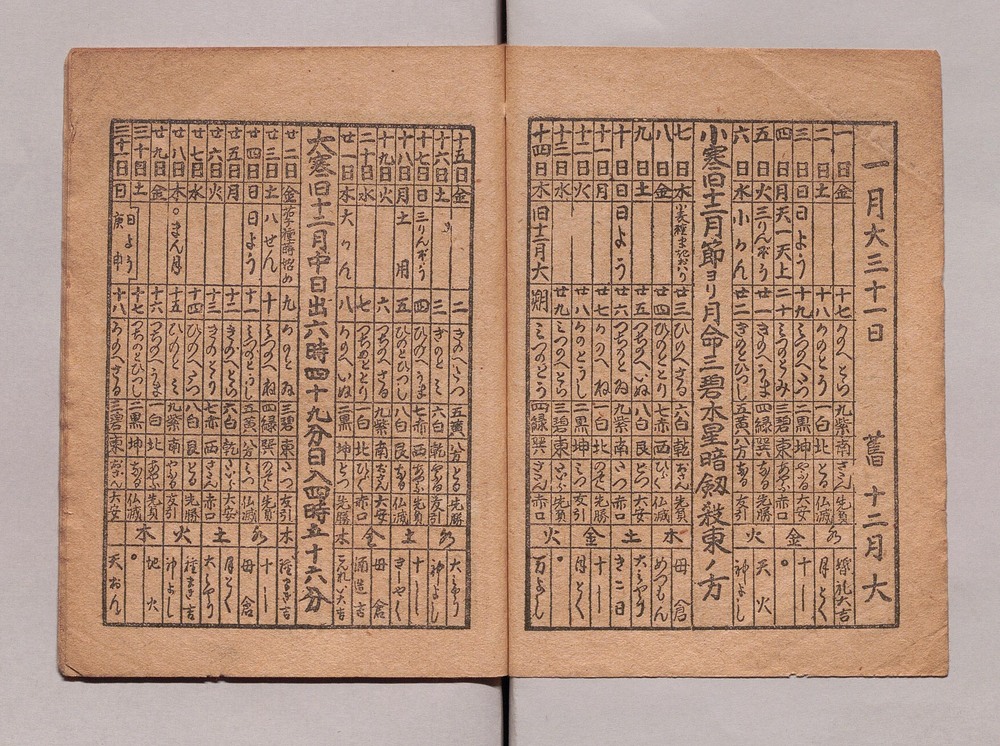 一月大三十一日 舊十二月大
一日金 十七 かのへとら 九紫 南 さだん 先負 婚礼大吉
二日土 十八 かのとう 一白 北 とる 仏滅 月とく
三日日 日よう 十九 みつのへたつ 二黒 坤 やぶる 大安 十一
四日月 天一天上 二十 みつのとみ 三碧 東 あやぶ 赤口
五日火 三りんぼう 廿一 きのへうま 四緑 巽 なる 先勝 天火
六日水 小かん 廿二 きのとひつし 五黄 八方 なる 友引 神よし
小寒旧十二月節ヨリ月命三碧木星暗劔殺東ノ方
七日木 廿三 ひのへさる 六白 乾 おさん 先負 母倉
八日金 廿四 ひのととり 七赤 西 ひらく 仏滅 めつもん
九日土 廿五 つちのへいぬ 八白 艮 とつ 大安 大みやう
十日日 日よう 廿六 つちのとゐ 九紫 南 たつ 赤口 きこ日
十一日月 廿七 かのへね 一白 北 のぞく 先勝 十一
十二日火 廿八 かのとうし 二黒 坤 みつ 友引 月とく
十三日水 廿九 みつのへとら 三碧 東 たいら 先負
十四日木 旧十二月大 朔 みつのとう 四緑 巽 さだん 赤口 万よし
十五日金 二 きのへたつ 五黄 八方 とる 先勝 大みやう
十六日土 三 きのとみ 六白 乾 やぶる 友引 神よし
十七日日 三りんぼう 四 ひのへうま 七赤 西 あやぶ 先負
十八日月 土用 五 ひのとひつし 八白 艮 なる 仏滅
十九日火 六 つちのへさる 九紫 南 おさん 大安 母倉
二十日水 七 つちのととり 一白 北 ひらく 赤口 酒造吉
廿一日木 大かん 八 かのへいぬ 二黒 坤 とつ 先勝
大寒旧十二月中日出六時四十九分日入四時五十六分
廿二日金 九 かのとゐ 三碧 東 たつ 友引 種まき吉
廿三日土 八せん 十 みつのへね 四緑 巽 のぞく 先負 十一
廿四日日 日よう 十一 みつのとうし 五黄 八方 みつ 仏滅 母倉
廿五日月 十二 きのへとら 六白 乾 たいら 大安 月とく
廿六日火 十三 きのとう 七赤 西 さだん 赤口 大みやう
廿七日水 十四 ひのへたつ 八白 艮 とる 先勝 種まき吉
廿八日木 。まん月 十五 ひのとみ 九紫 南 やぶる 友引 神よし
廿九日金 十六 つちのへうま 一白 北 あやぶ 先負 地火
三十日土 十七 つちのとひつし 二黒 坤 なる 仏滅
三十一日日 日よう 庚申 十八 かのへさる 三碧 東 おさん 大安 天おん